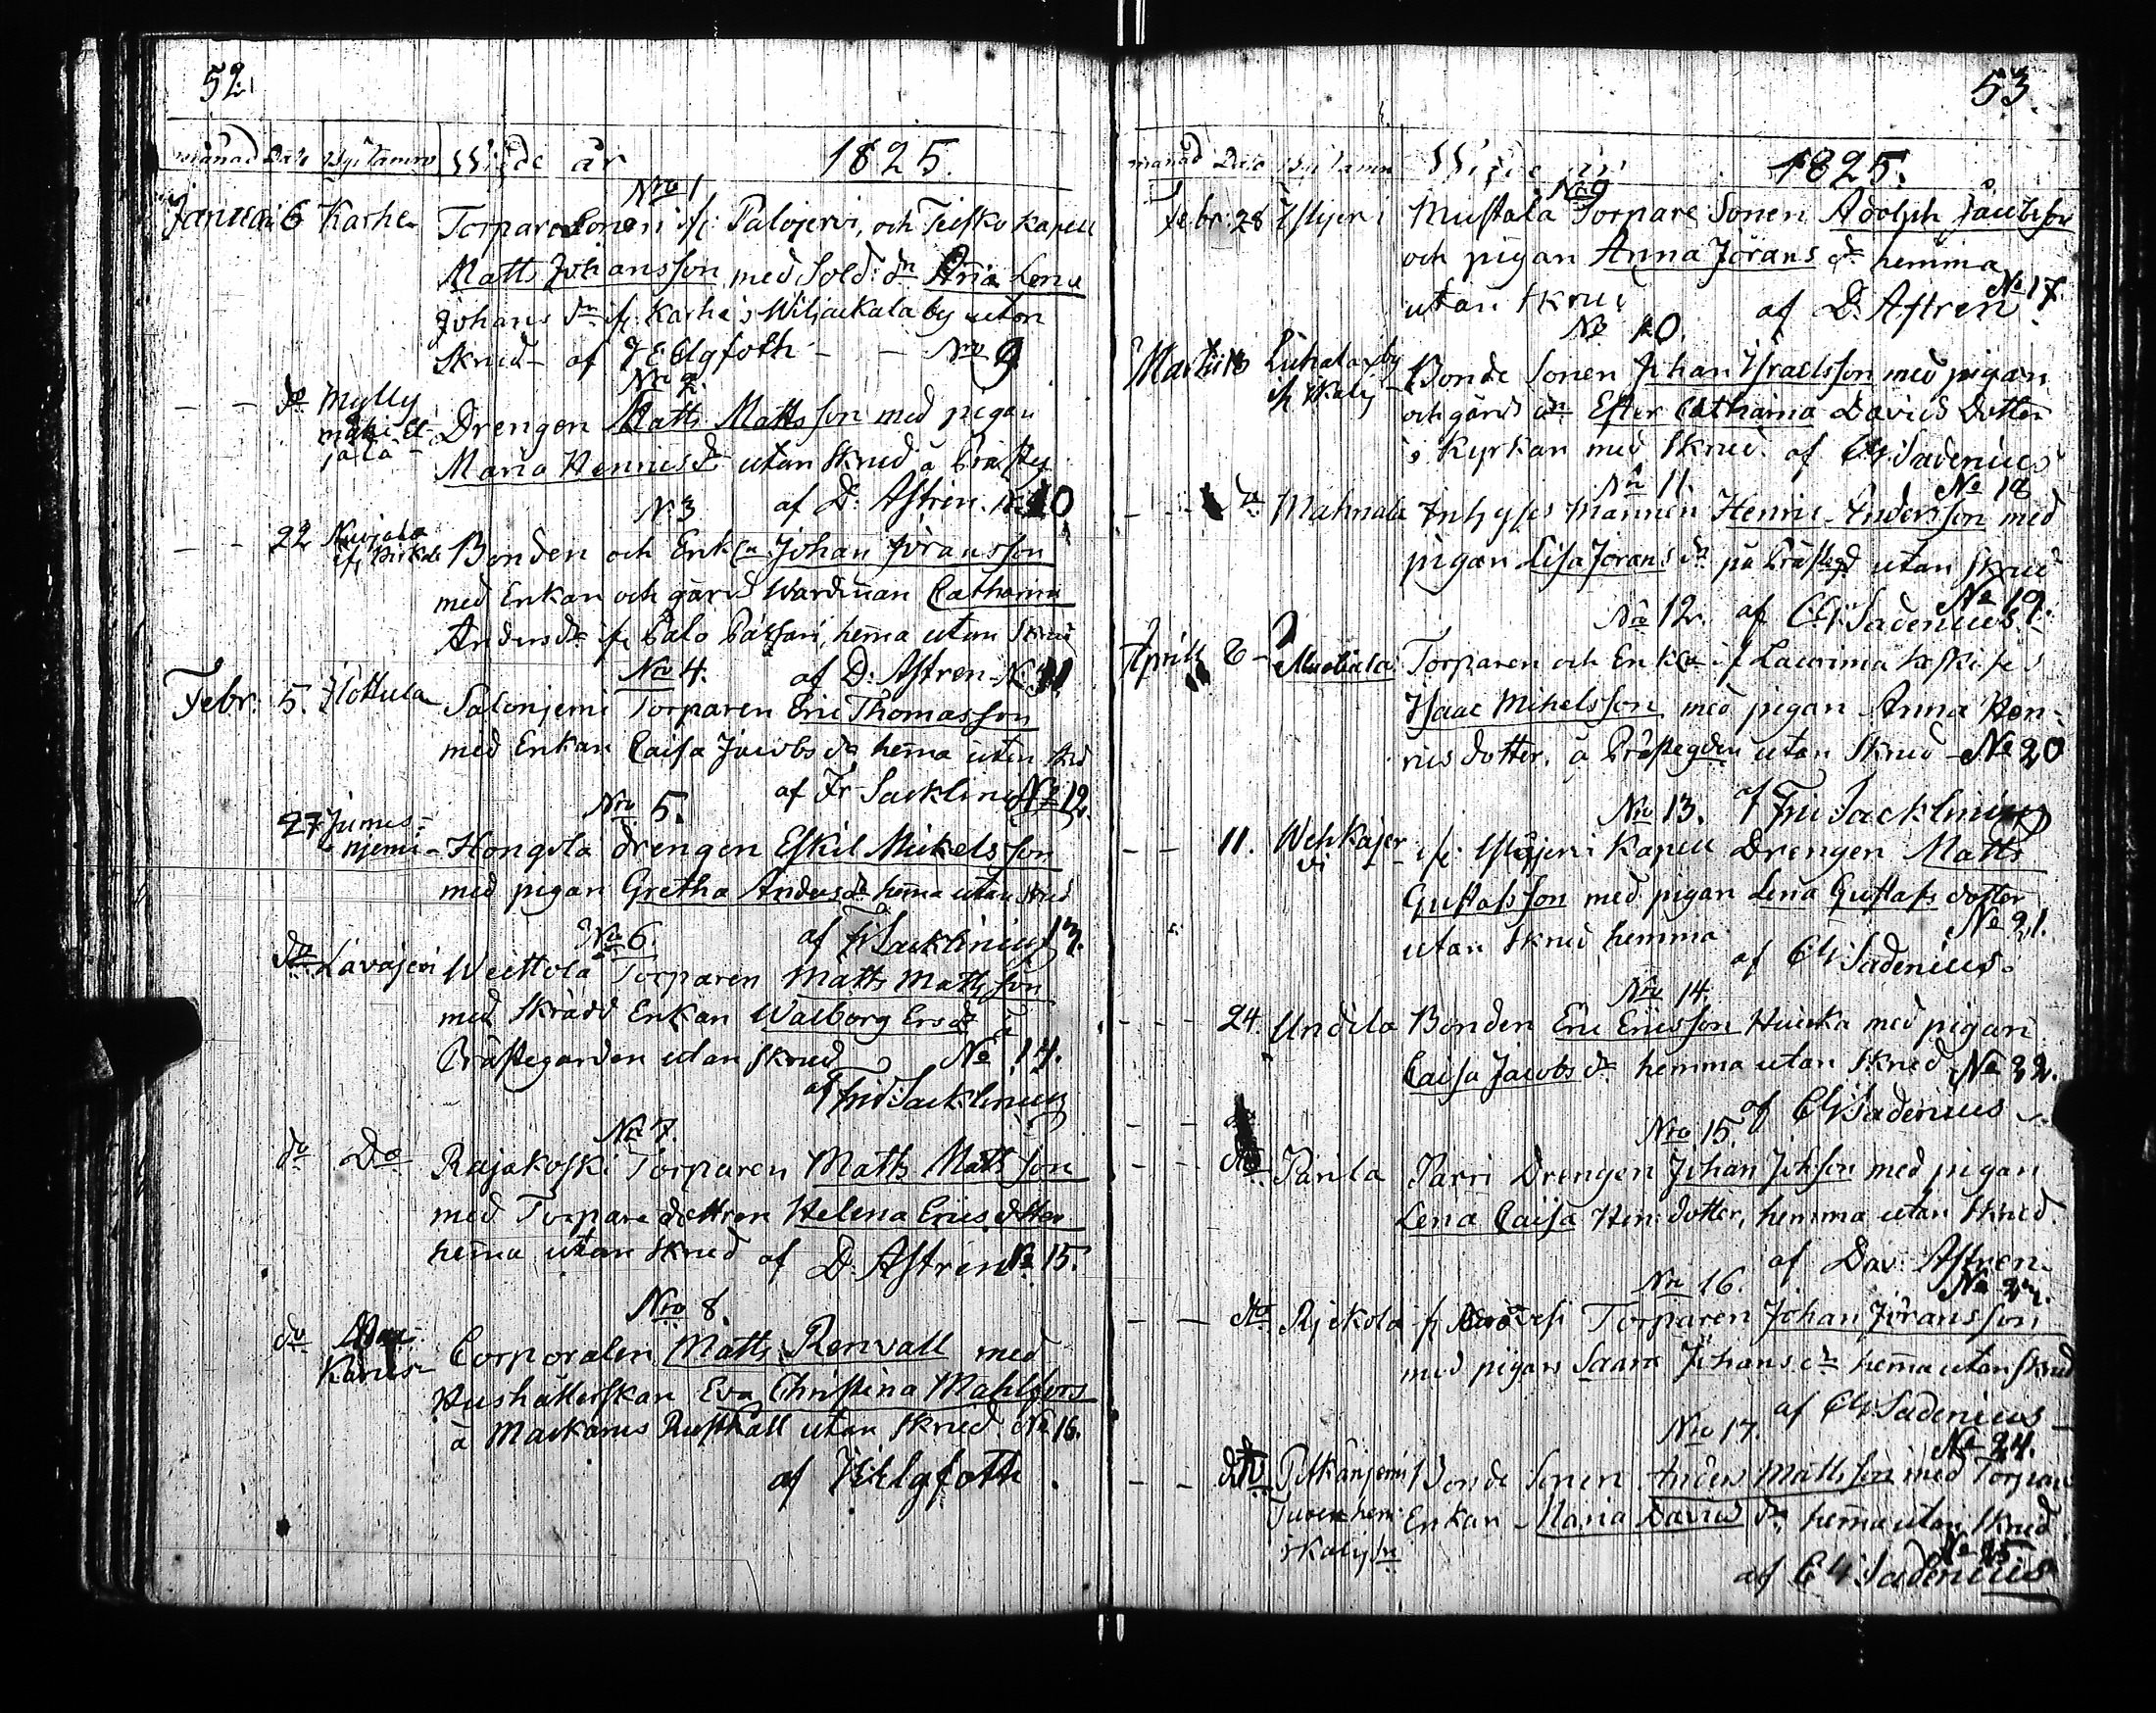 52.
månad Dato Bys Namn Wigde år 1825.
Nro 1
Januari 6 Karhe Torpare Sonen ifr Palojervi, och Teisko Kapell
Matts Johansson med Sold: dn Lena
Johans dr ifr Karhe, Wiljakala by utan
Skrud - af Elgfoth - - Nro 9
Nro 2.
- - do Mylly
Drengen Matts Mattsson med pigan
jala -
Maria Henrics dr utan Skrud å Prästeg
af D: Astren. 10
N 3
- - 22 Bonden och Enkln Johan Jöransson
med Enkan och gårds Wardinan Catharina
Anders dr ifr Palo hema utan Skrud
Nro 4. af D: Astren - No 11.
Febr. 5. Hottula Salonjemi Torparen Eric Thomasson
med Enkan Caisa Jacobs dr hema utan Skd
af Fr Sacklinius No 12.
Nro 5.
27 Jumes-
njemi - Hongola drengen Eskil Mickelsson
med pigan Gretha Anders dr hema utan Skrud
Nro 6. af Fr Sacklinius 13.
do Lavajervi Torparen Matts Mattsson
med Skrädd Enkan Walborg Ers dr å
Prästegården utan Skrud No 14.
af Frid Sacklinius
Nro 7.
do Do Rajakoski Torparen Matts Mattsson
med Torpare dottren Helena Erics dotter
hema utan Skrud af D: Astren No 15.
Nro 8.
do Mar-
karus Corporalen Matts Renvall med
Hushållerskan Eva Christina Mahlfors
å Markarus Rusthåll utan Skrud. No 16.
af Elgfoth.
53.
månad Dato Bys Namn Wigde år 1825.
Nro 9
Febr: 28 Mustala Torpare Sonen Adolph Jacobsson
och pigan Anna Jörans dr hemma
utan Skrud af D: Astren No 17.
No 10.
Martii Luhalax by
Bonde Sonen Johan Israelsson med pigan
och gårds dn Ester Catharina Davids Dotter
i Kyrkan med Skrud. af Sadenius
No 11. No 18
- - - do Mahnala Inhyses Mannen Henric Andersson med
pigan Lisa Jörans dr på Prästegd utan Skrud
No 12. af Sadenius No 19.
April 6 - Torparen och Enkln ifr Laurima
Isaac Mihelsson med pigan Anna Hen-
rics dotter. å Prästegden utan Skrud - No 20
Nro 13. af Frid Sacklinius
- - 11. Wehkajer
vi - Kapell Drengen Matts
Gustafsson med pigan Lena Gustafs dotter
utan Skrud hemma No 21.
af Sadenius.
Nro 14.
- - - 24. Undila Bonden Eric Ericsson med pigan
Caisa Jacobs dr hemma utan Skrud No 22.
af Sadenius
Nro 15.
- - do Parila Parri Drengen Johan Johsson med pigan
Lena Caisa Hen: dotter, hemma utan Skrud.
af Dav: Astren
Nro 16. No 23.
- - do Rjekola ifr Torparen Johan Jöransson
med pigan Saara Johans dr hema utan Skrud
af Sadenius -
Nro 17. No 24.
- - do Pitkänjemi Bonde Sonen Anders Mattsson med Torpare
Enkan Maria Davids dr hema utan Skrud
No 25
af Sadenius